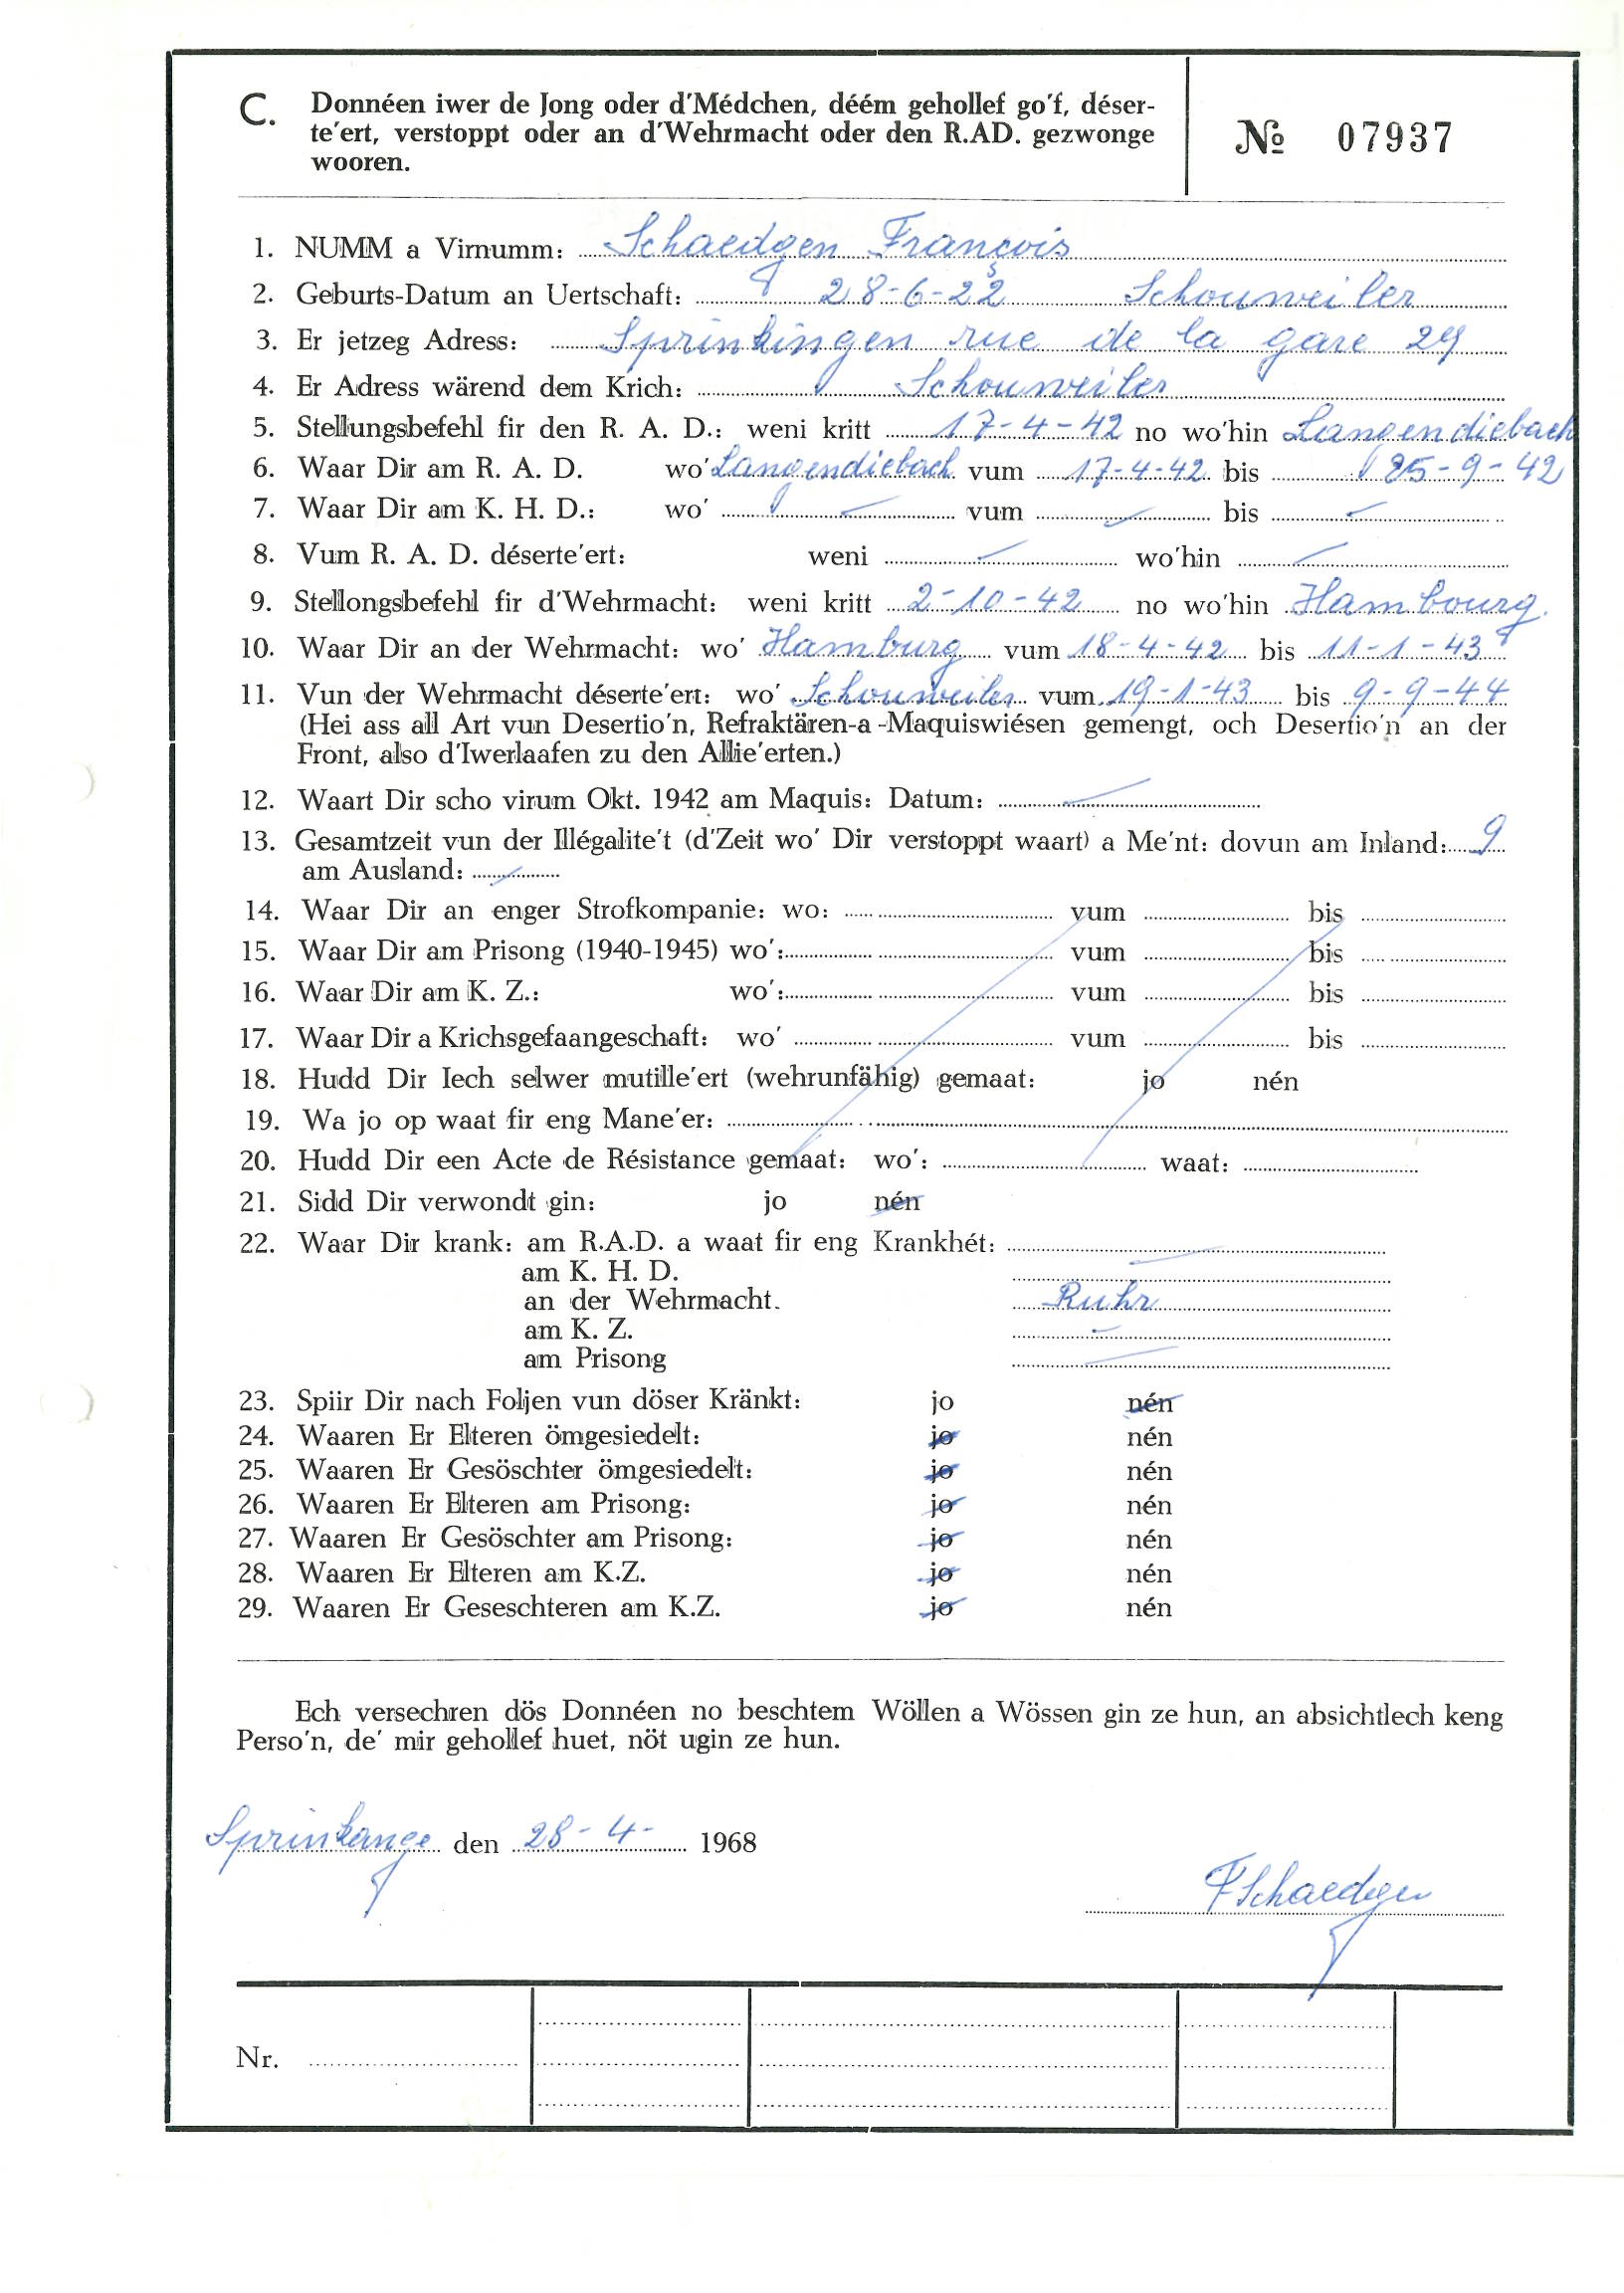 C. Donnéen iwer de Jong oder d'Médchen, déém gehollef go'f, déser-
te'ert, verstoppt oder an d'Wehrmacht oder den R.AD. gezwonge
wooren.
№ 07937
1. NUMM a Virnumm: Schaedgen François
2. Geburts-Datum an Uertschaft: 28-6-22 Schouweiler
3. Er jetzeg Adress: Sprinkingen rue de la gare 29
4. Er Adress wärend dem Krich: Schouweiler
5. Stellungsbefehl fir den R. A. D.: weni kritt 17-4-42 no wo'hin Langendiebach
6. Waar Dir am R. A. D. wo' Langendiebach vum 17-4-42 bis 25-9-42
7. Waar Dir am K. H. D.: wo' — vum — bis —
8. Vum R. A. D. déserte'ert: weni — wo'hin —
9. Stellongsbefehl fir d'Wehrmacht: weni kritt 2-10-42 no wo'hin Hambourg.
10. Waar Dir an der Wehrmacht: wo' Hamburg vum 18-4-42 bis 11-1-43
11. Vun der Wehrmacht déserte'ert: wo' Schouweiler vum 19-1-43 bis 9-9-44
(Hei ass all Art vun Desertio'n, Refraktären-a-Maquiswiésen gemengt, och Desertio'n an der
Front, also d'Iwerlaafen zu den Allie'erten.)
12. Waart Dir scho virum Okt. 1942 am Maquis: Datum: —
13. Gesamtzeit vun der Illégalite't (d'Zeit wo' Dir verstoppt waart) a Me'nt: dovun am Inland: 9
am Ausland: —
14. Waar Dir an enger Strofkompanie: wo: vum bis
15. Waar Dir am Prisong (1940-1945) wo': vum bis
16. Waar Dir am K. Z.: wo': vum bis
17. Waar Dir a Krichsgefaangeschaft: wo' vum bis
18. Hudd Dir Iech selwer mutille'ert (wehrunfähig) gemaat: jo nén
19. Wa jo op waat fir eng Mane'er:
20. Hudd Dir een Acte de Résistance gemaat: wo': waat:
21. Sidd Dir verwondt gin: jo nén
22. Waar Dir krank: am R.A.D. a waat fir eng Krankhét: —
am K. H. D.
an der Wehrmacht. Ruhr
am K. Z. —
am Prisong —
23. Spiir Dir nach Foljen vun döser Kränkt: jo nén
24. Waaren Er Elteren ömgesiedelt: jo nén
25. Waaren Er Gesöschter ömgesiedelt: jo nén
26. Waaren Er Elteren am Prisong: jo nén
27. Waaren Er Gesöschter am Prisong: jo nén
28. Waaren Er Elteren am K.Z. jo nén
29. Waaren Er Geseschteren am K.Z. jo nén
Ech versechren dös Donnéen no beschtem Wöllen a Wössen gin ze hun, an absichtlech keng
Perso'n, de' mir gehollef huet, nöt ugin ze hun.
Sprinkange den 28-4- 1968
F Schaedgen
Nr.